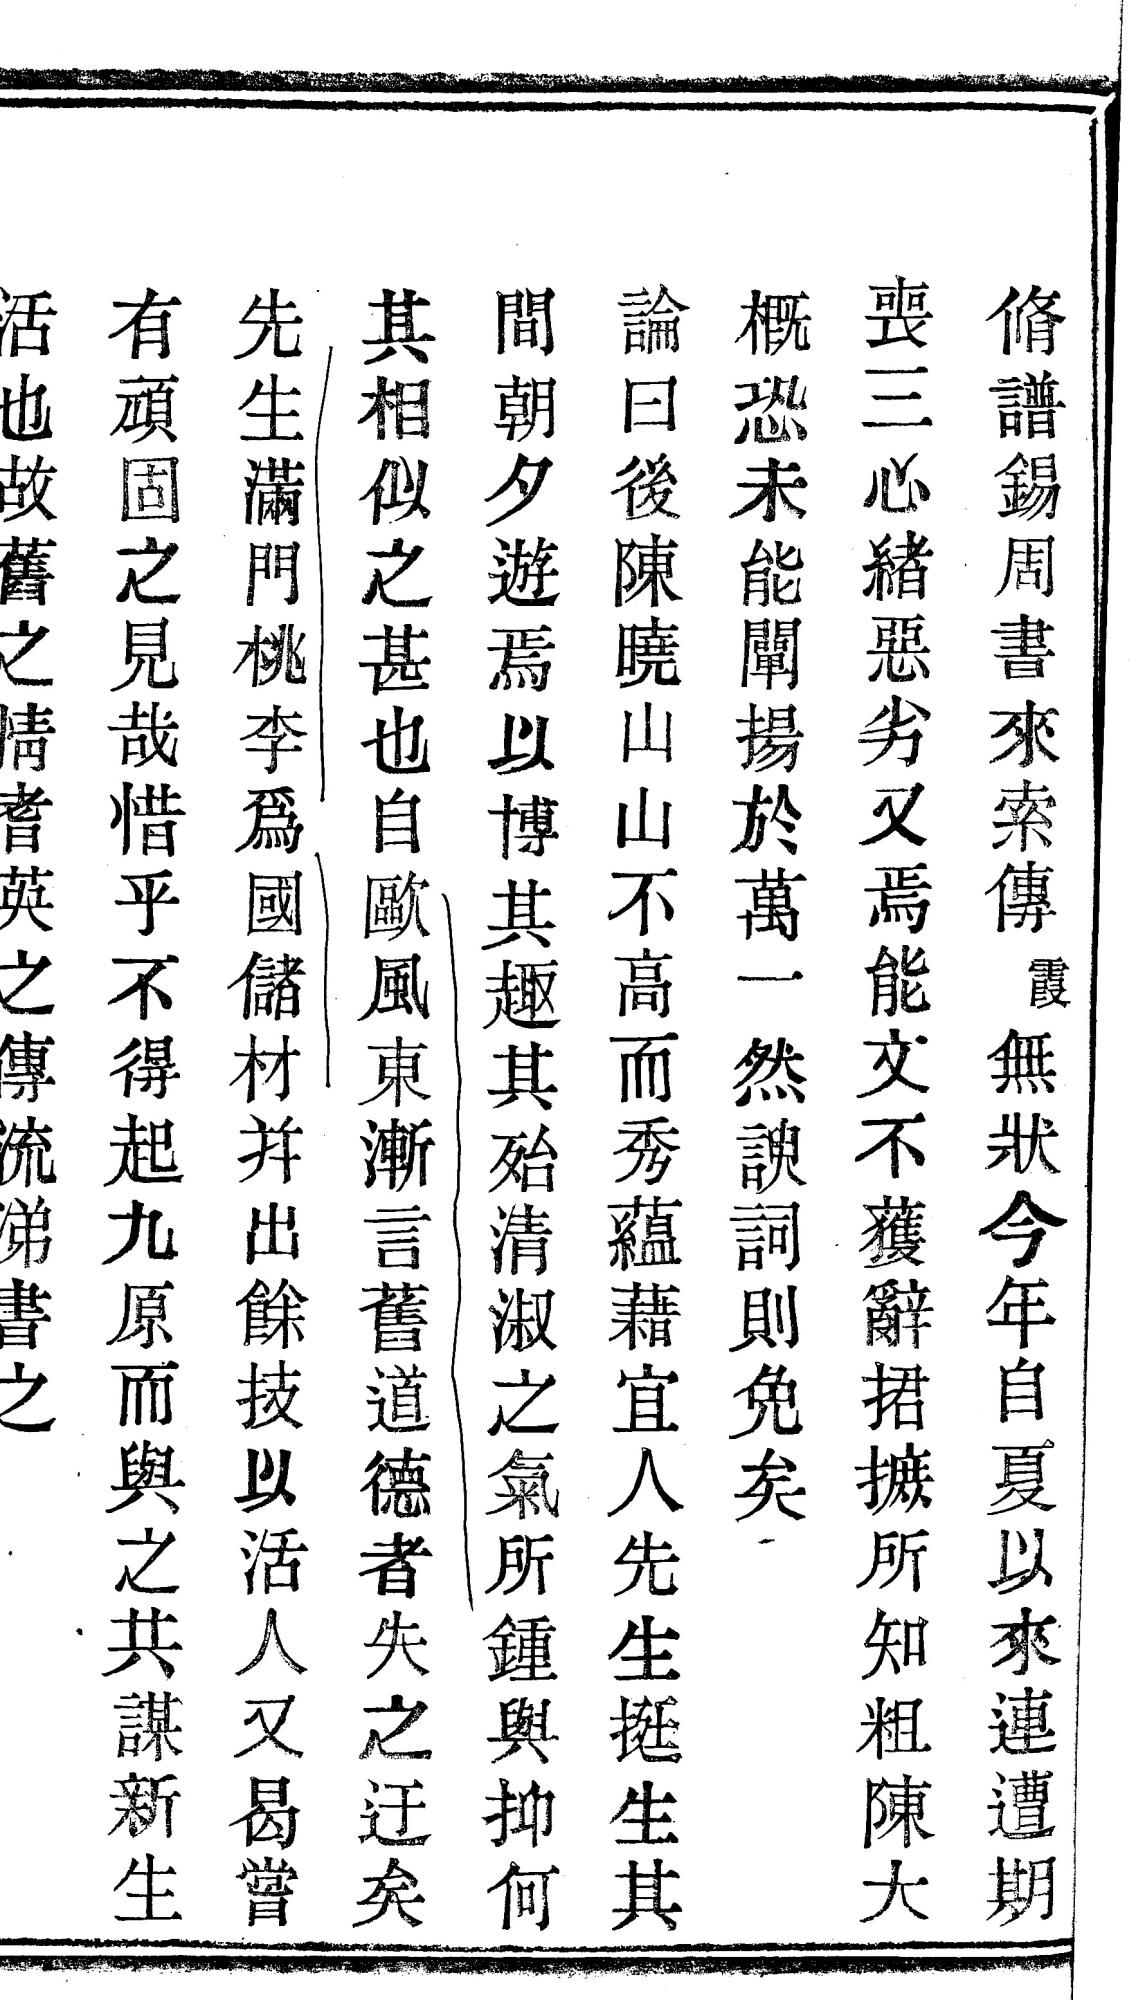 脩譜錫周書來索傳霞無狀今年自夏以來連遭期
喪三心緒惡劣又焉能文不獲辭捃摭所知粗陳大
概恐未能闡揚於萬一然諛詞則免矣
論曰後陳曉山山不高而秀蘊藉宜人先生挺生其
間朝夕遊焉以博其趣其殆清淑之氣所鍾與抑何
其相似之甚也自歐風東漸言舊道德者失之迂矣
先生滿門桃李爲國儲材并出餘技以活人又曷嘗
有頑固之見哉惜乎不得起九原而與之共謀新生
活也故舊之情耆英之傳流涕書之